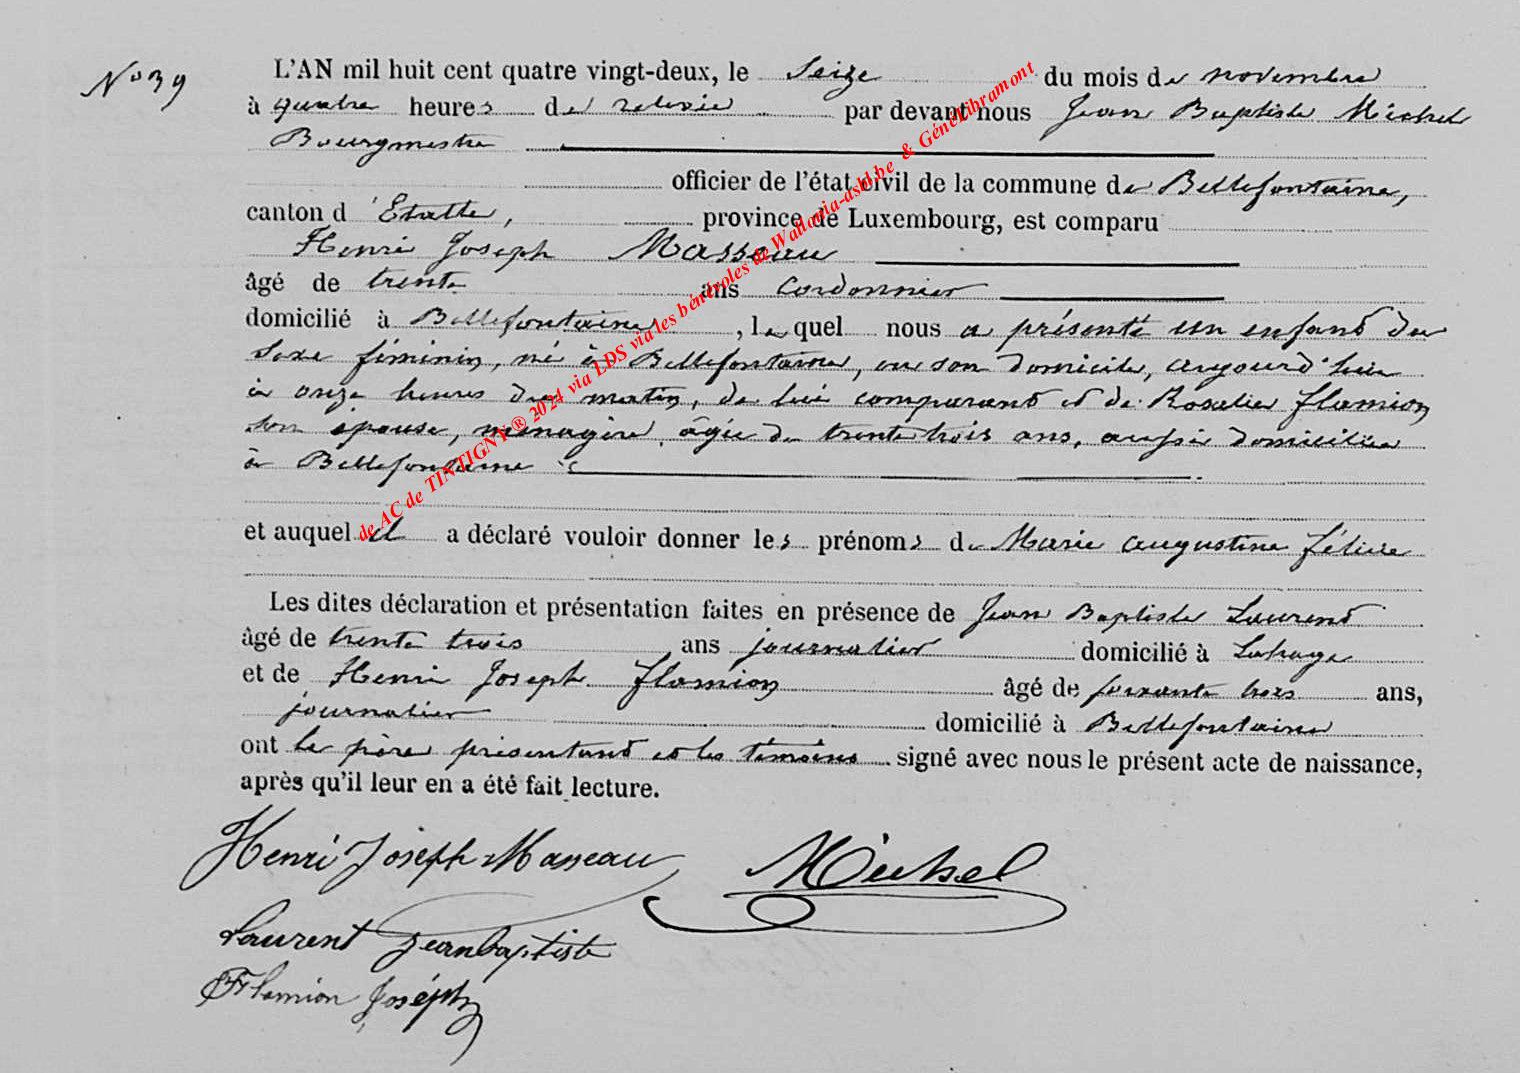 N° 39
L'AN mil huit cent quatre vingt-deux, le seize du mois de novembre
à quatre heures de relevée par devant nous Jean Baptiste Michel
Bourgmestre
officier de l'état civil de la commune de Bellefontaine,
canton d'Etalle, province de Luxembourg, est comparu
Henri Joseph Masseau
âgé de trente ans cordonnier
domicilié à Bellefontaine, lequel nous a présenté un enfant du
sexe féminin, né à Bellefontaine, en son domicile, aujourd'hui
à onze heures du matin, de lui comparant et de Rosalie Flamion
son épouse, ménagère, âgée de trente trois ans, aussi domiciliée
à Bellefontaine
et auquel il a déclaré vouloir donner les prénoms de Marie Augustine Félicie
Les dites déclaration et présentation faites en présence de Jean Baptiste Laurent
âgé de trente trois ans journalier domicilié à Lahage
et de Henri Joseph Flamion âgé de soixante trois ans,
journalier domicilié à Bellefontaine
ont le père présentant et les témoins signé avec nous le présent acte de naissance,
après qu'il leur en a été fait lecture.
Henri Joseph Masseau Michel
Laurent Jeanbaptiste
Flamion Joséph
de AC de TINTIGNY ® 2024 via LDS via les bénévoles de Wallonia-asbl.be & GénéLibramont